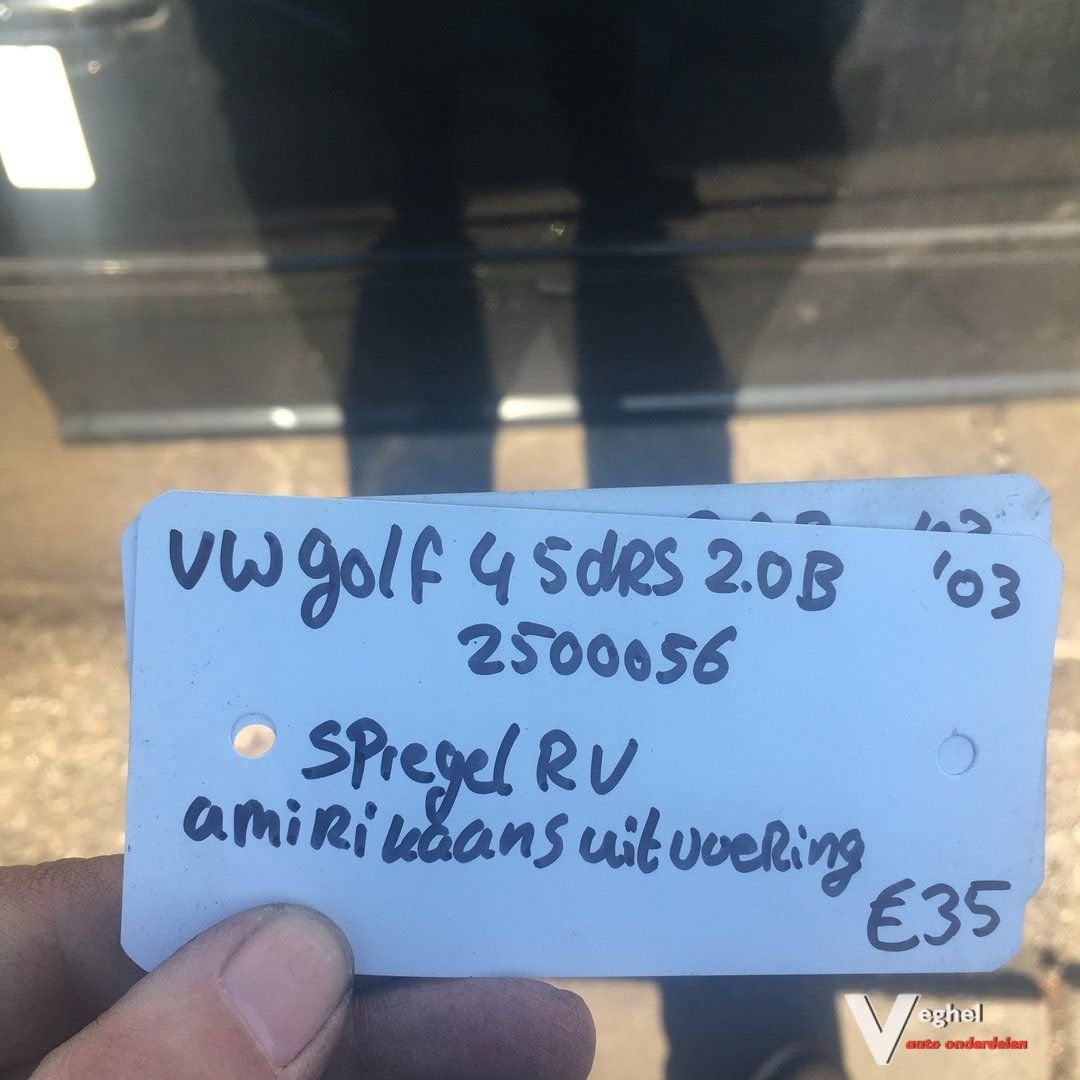 VW golf 4 5dRS 2.0B '03
2500056
SPiegel RV
amiRikaans uitvoeRing
€35
Veghel
auto onderdelen